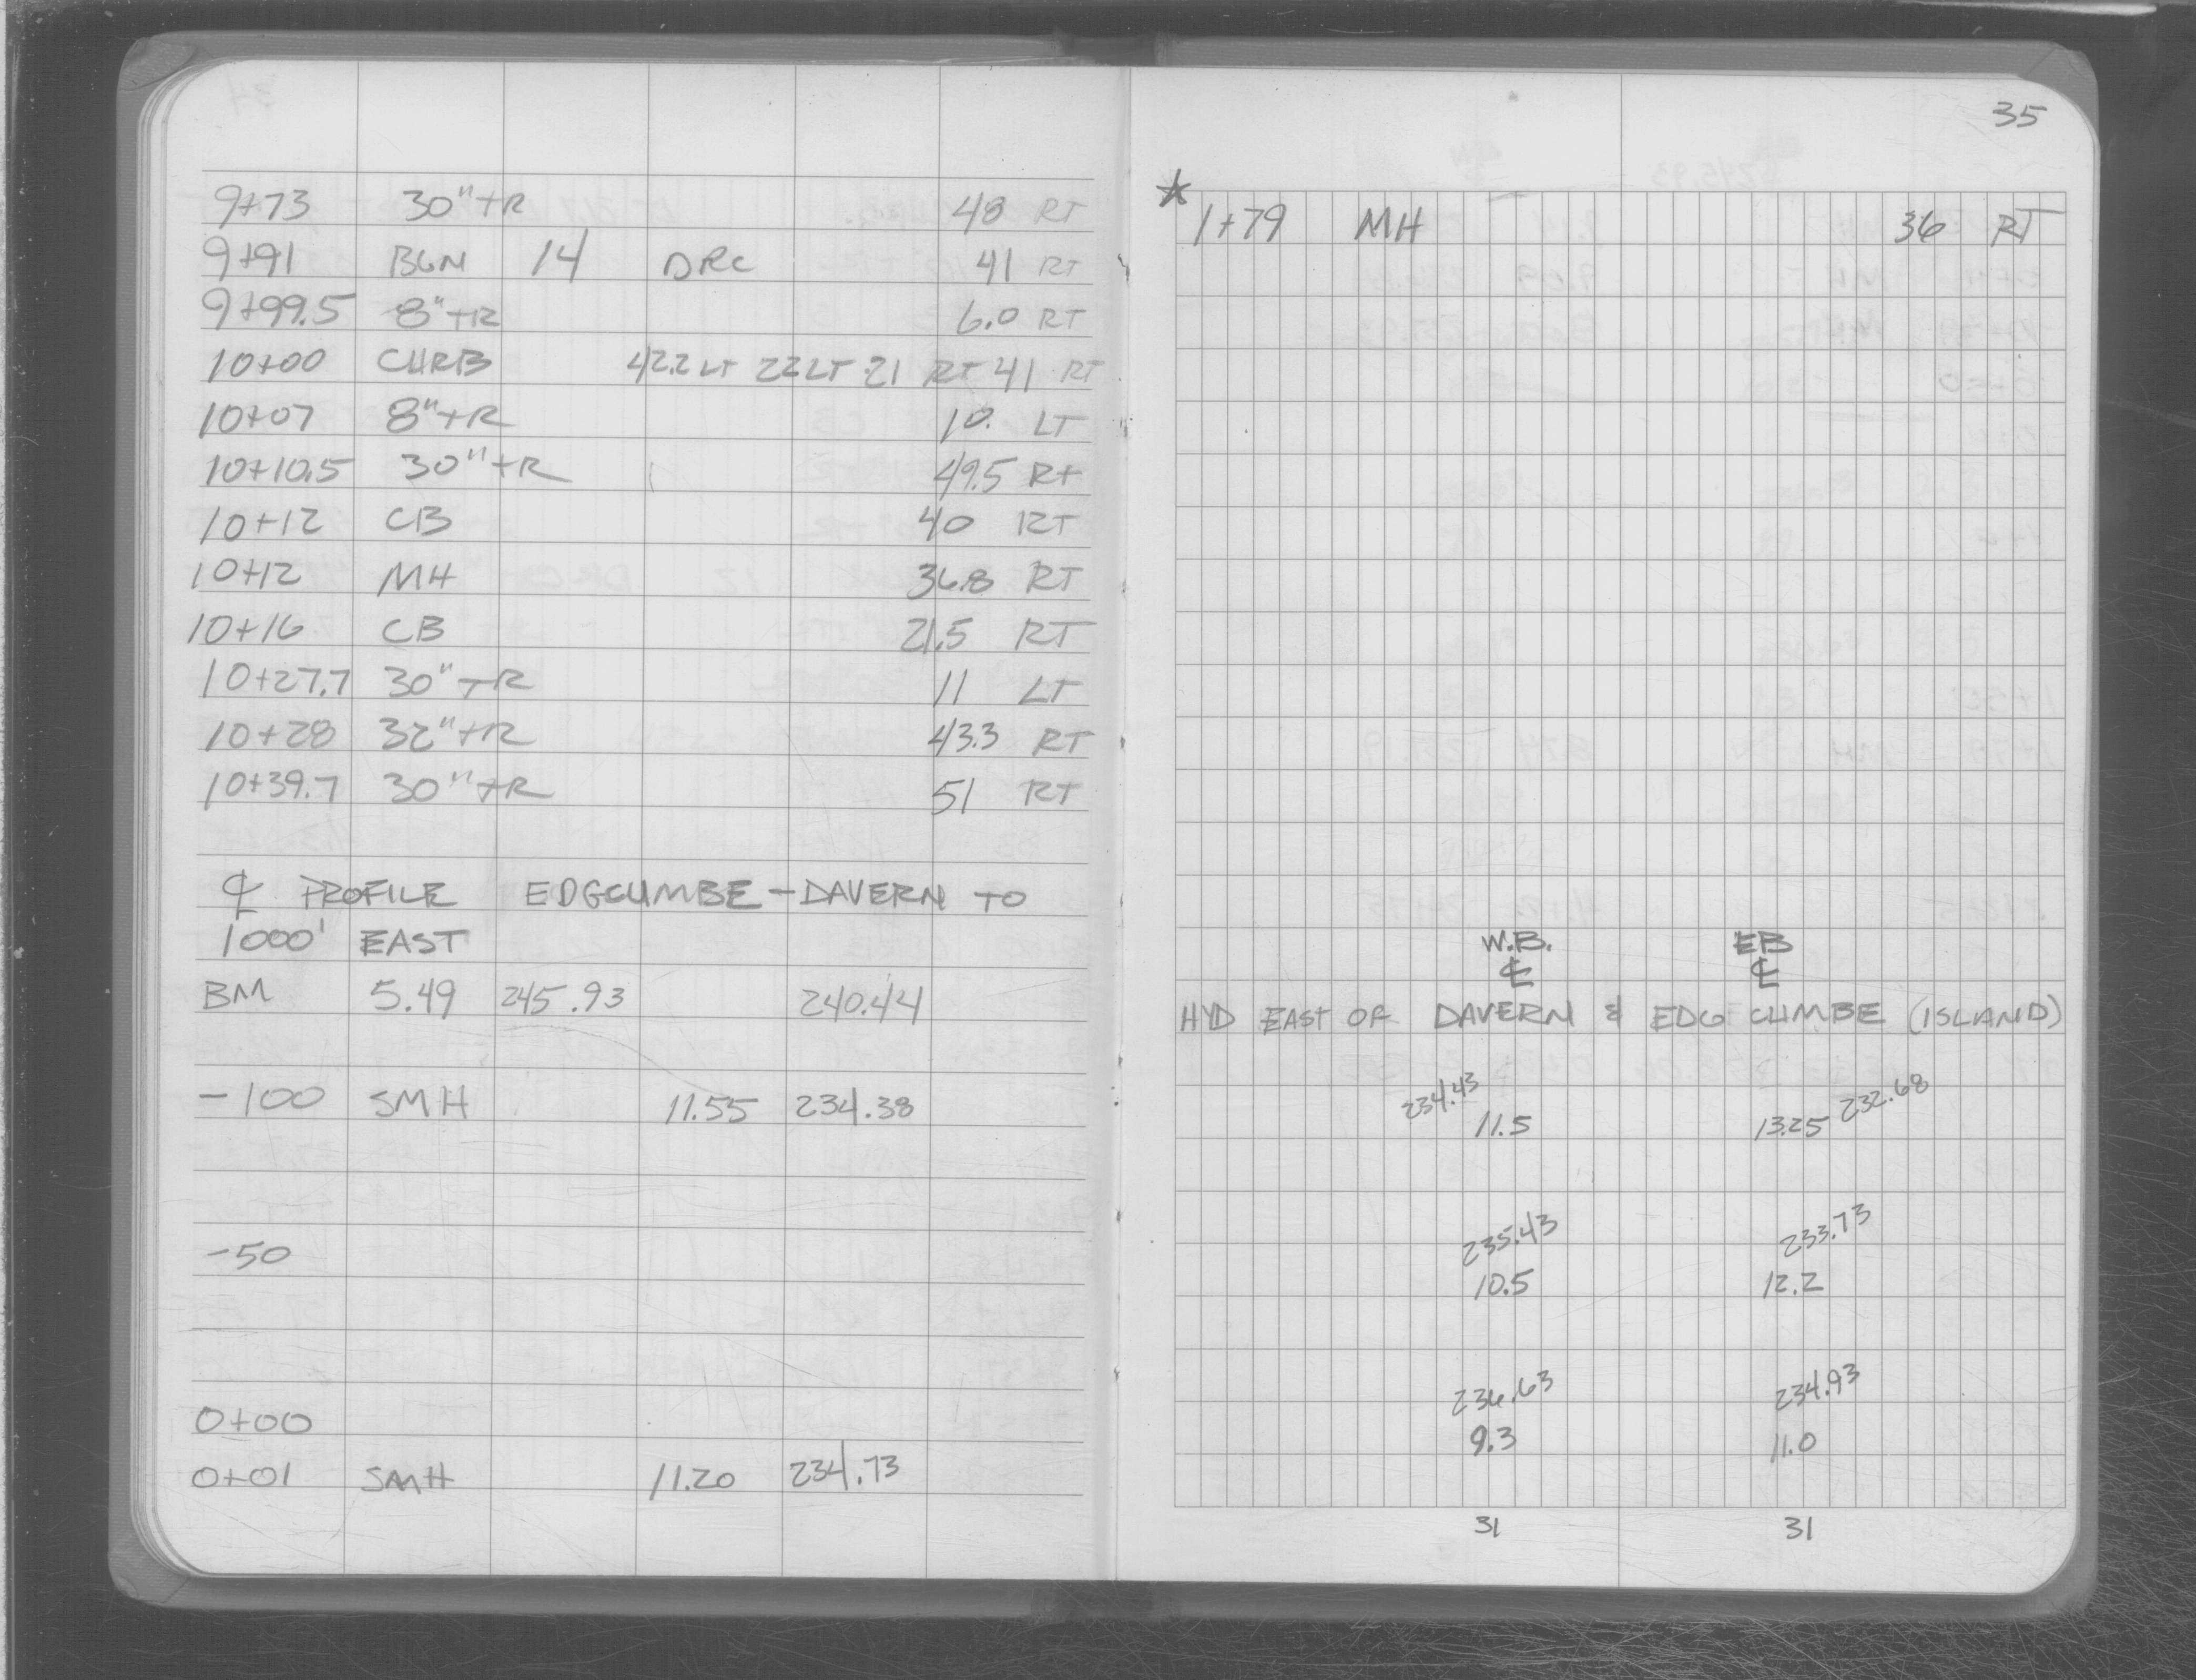 9+73 30"TR 48 RT
9+91 BGN 14 DRC 41 RT
9+99.5 8"TR 6.0 RT
10+00 CURB 42.2 LT 22 LT 21 RT 41 RT
10+07 8"TR 10. LT
10+10.5 30"TR 49.5 RT
10+12 CB 40 RT
10+12 MH 36.8 RT
10+16 CB 21.5 RT
10+27.7 30"TR 11 LT
10+28 32"TR 43.3 RT
10+39.7 30"TR 51 RT
℄ PROFILE EDGCUMBE - DAVERN TO
1000' EAST
BM 5.49 245.93 240.44
-100 SMH 11.55 234.38
-50
0+00
0+01 SMH 11.20 234.73
35
* 1+79 MH 36 RT
W.B. EB
℄ ℄
HYD EAST OF DAVERN & EDG CUMBE (ISLAND)
234.43 232.68
11.5 13.25
235.43 233.73
10.5 12.2
236.63 234.93
9.3 11.0
31 31